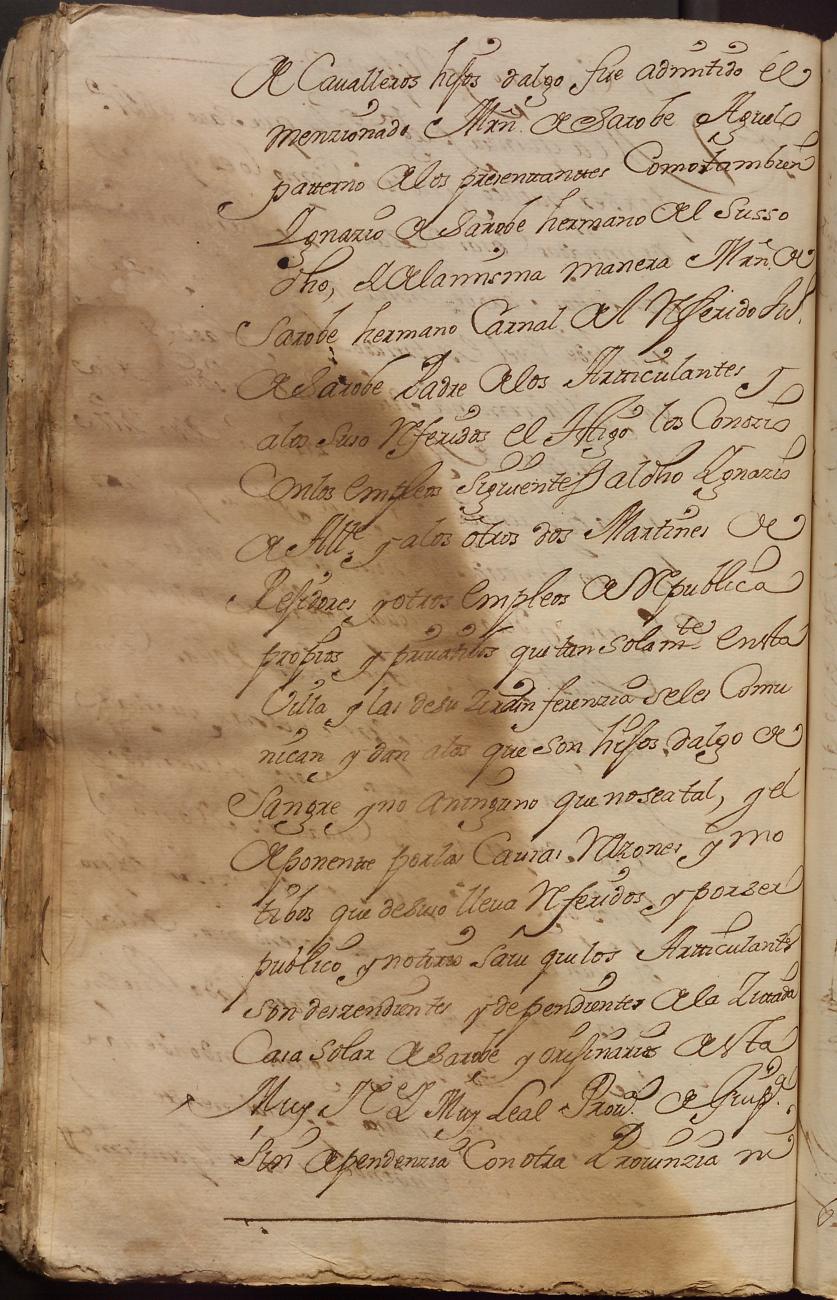 de Cavalleros hijos dalgo fue admitido el
menzionado Mrn. de Sarobe Aguelo
paterno de los presentantes Como tambien
Ygnazio de Sarobe hermano del Susso
dho, y de la misma manera Mrn. de
Sarobe hermano Carnal del Referido Ju.
de Sarobe Padre de los Articulantes y
a los suso Referidos el Testigo los Conozio
Con los empleos Siguientes al dho Ygnazio
de Alle. y a los otros dos Martines de
Rejidores y otros empleos de Republica
propios y privatibos que tan solamte. en esta
Villa y las de su Zircunferenzia seles Comu
nican y dan alos que son hijos dalgo de
Sangre y no a ninguno que no sea tal, y el
deponente por las Causas Razones y mo
tibos que de suso lleva Referidos y por ser
publico y notorio save que los Articulantes
son deszendientes y dependientes de la Zittada
Casa Solar de Sarobe y orijinarios de esta
Muy N. e Muy Leal Prova. de Guipa.
Sin dependenzia Con otra Provinzia ni